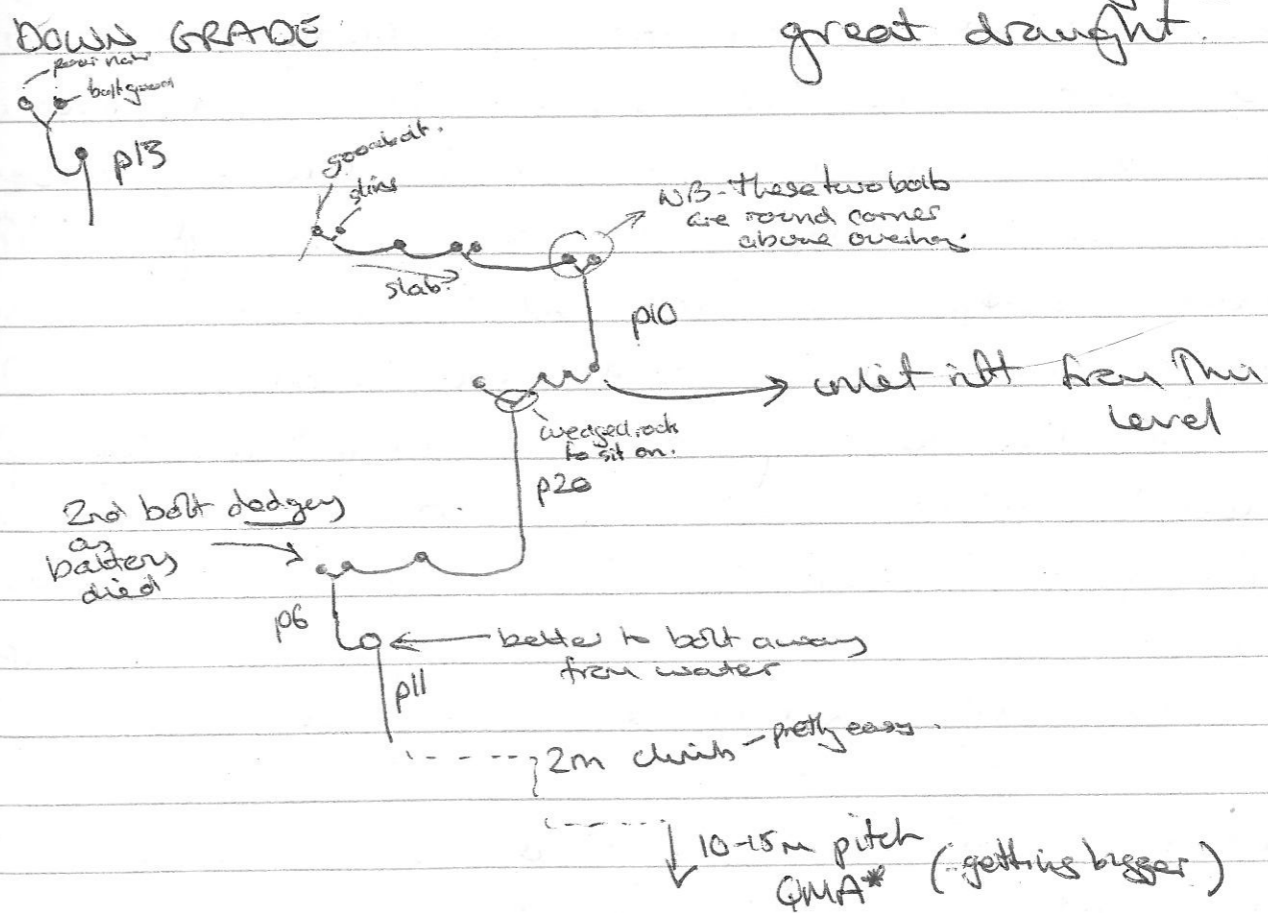 DOWN GRADE
great draught.
bolt good
p13
good bolt.
slings
slab?
NB - These two bolts
are round corner
above overhang.
p10
inlet rift from this
level
wedged rock
to sit on.
p20
2nd bolt dodgey
as
battery
died
p6
better to bolt away
from water
p11
2m climb - pretty easy.
10-15m pitch
QMA* (getting bigger)